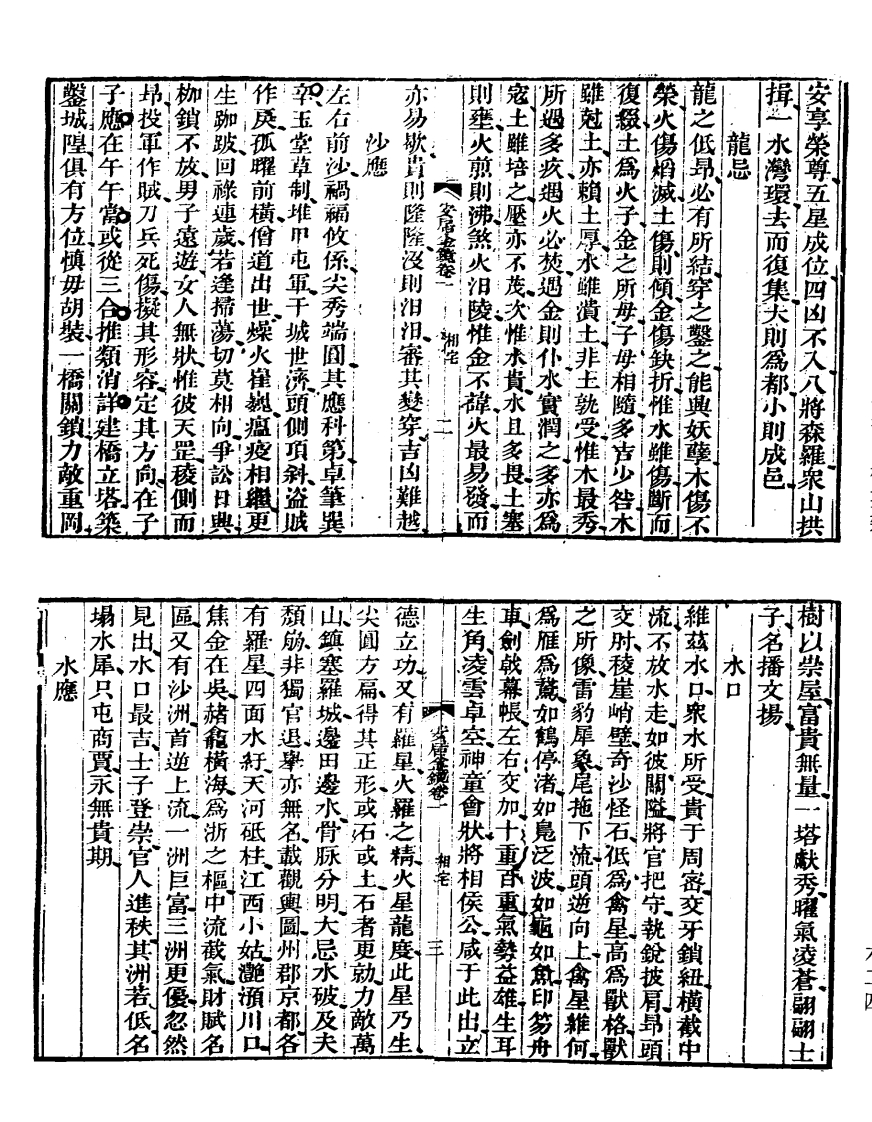 安享榮尊五星成位四凶不入八將森羅衆山拱
揖一水灣環去而復集大則爲都小則成邑
龍忌
龍之低昂必有所結穿之鑿之能興妖孽木傷不
榮火傷熖滅土傷則傾金傷鈌折惟水雖傷斷而
復綴土爲火子金之所母子母相隨多吉少咎木
雖尅土亦賴土厚水雖潰土非土孰受惟木最秀
所遇多疚遇火必焚遇金則仆水實潤之多亦爲
宼土雖培之壓亦不茂次惟水貴水且多畏土塞
則壅火煎則沸煞火汨陵惟金不諱火最易發而
安居金鏡卷一 相宅 二
亦易歇貴則隆隆沒則汨汨審其變穿吉凶難越
沙應
左右前沙禍福攸係尖秀端圓其應科第卓筆巽
辛玉堂草制堆甲屯軍干城世濟頭側頂斜盜賊
作戾孤曜前橫僧道出世燥火崔巍瘟疫相繼更
生跏跛回祿連歲若逢掃蕩切莫相向爭訟日興
枷鎖不放男子遠遊女人無狀惟彼天罡稜側而
昂投軍作賊刀兵死傷擬其形容定其方向在子
子應在午午當或從三合推類消詳建橋立塔築
鑿城隍俱有方位慎毋胡裝一橋關鎖力敵重岡
樹以崇屋富貴無量一塔獻秀曜氣凌蒼翩翩士
子名播文揚
水口
維茲水口衆水所受貴于周密交牙鎖紐橫截中
流不放水走如彼關隘將官把守執銳披肩昂頭
交肘稜崖峭壁奇沙怪石低爲禽星高爲獸格獸
之所像雷豹犀象尾拖下流頭逆向上禽星維何
爲雁爲鵞如鶴停渚如鳧泛波如龜如魚印笏舟
車劍戟幕帳左右交加十重百重氣勢益雄生耳
生角凌雲卓空神童會狀將相侯公咸于此出立
安居金鏡卷一 相宅 三
德立功又有羅星火羅之精火星龍度此星乃生
尖圓方扁得其正形或石或土石者更勍力敵萬
山鎮塞羅城邊田邊水骨脉分明大忌水破及夫
頽崩非獨官退舉亦無名載觀輿圖州郡京都各
有羅星四面水紆天河砥柱江西小姑灧澦川口
焦金在吳赭龕橫海爲浙之樞中流截氣財賦名
區又有沙洲首逆上流一洲巨富三洲更優忽然
見出水口最吉士子登崇官人進秩其洲若低名
塌水犀只屯商賈永無貴期
水應